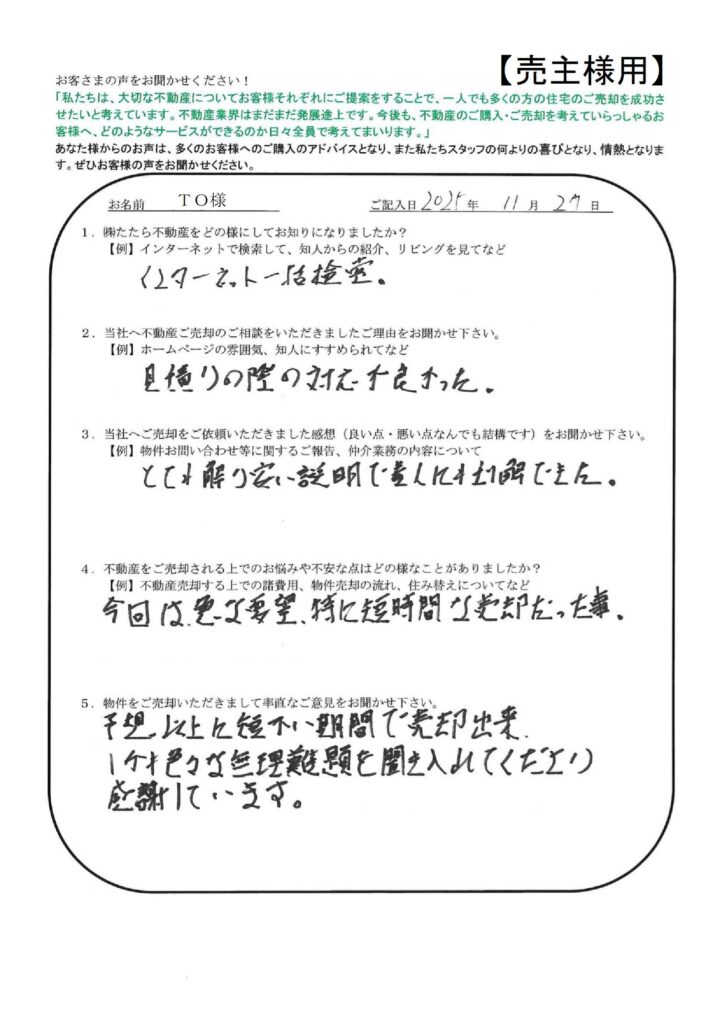 【売主様用】
お客さまの声をお聞かせください！
「私たちは、大切な不動産についてお客様それぞれにご提案をすることで、一人でも多くの方の住宅のご売却を成功さ
せたいと考えています。不動産業界はまだまだ発展途上です。今後も、不動産のご購入・ご売却を考えていらっしゃるお
客様へ、どのようなサービスができるのか日々全員で考えてまいります。」
あなた様からのお声は、多くのお客様へのご購入のアドバイスとなり、また私たちスタッフの何よりの喜びとなり、情熱となりま
す。ぜひお客様の声をお聞かせください。
お名前 ＴＯ様 ご記入日 2025年 11月 27日
１．㈱たたら不動産をどの様にしてお知りになりましたか？
【例】インターネットで検索して、知人からの紹介、リビングを見てなど
インターネット一括検索。
２．当社へ不動産ご売却のご相談をいただきましたご理由をお聞かせ下さい。
【例】ホームページの雰囲気、知人にすすめられてなど
見積りの際の対応が良かった。
３．当社へご売却をご依頼いただきました感想（良い点・悪い点なんでも結構です）をお聞かせ下さい。
【例】物件お問い合わせ等に関するご報告、仲介業務の内容について
とても解り安い説明で素人にも理解できた。
４．不動産をご売却される上でのお悩みや不安な点はどの様なことがありましたか？
【例】不動産売却する上での諸費用、物件売却の流れ、住み替えについてなど
今回は、急な要望、特に短時間な売却だった事。
５．物件をご売却いただきまして率直なご意見をお聞かせ下さい。
予想以上に短い期間で売却出来、
色々な無理難題を聞き入れてくださり
感謝しています。